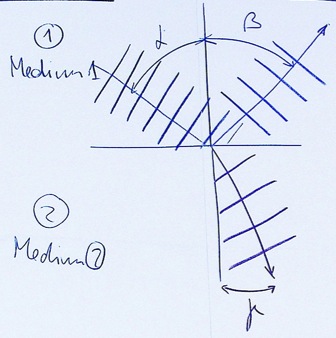 ①
α
β
Medium 1
②
Medium ②
γ